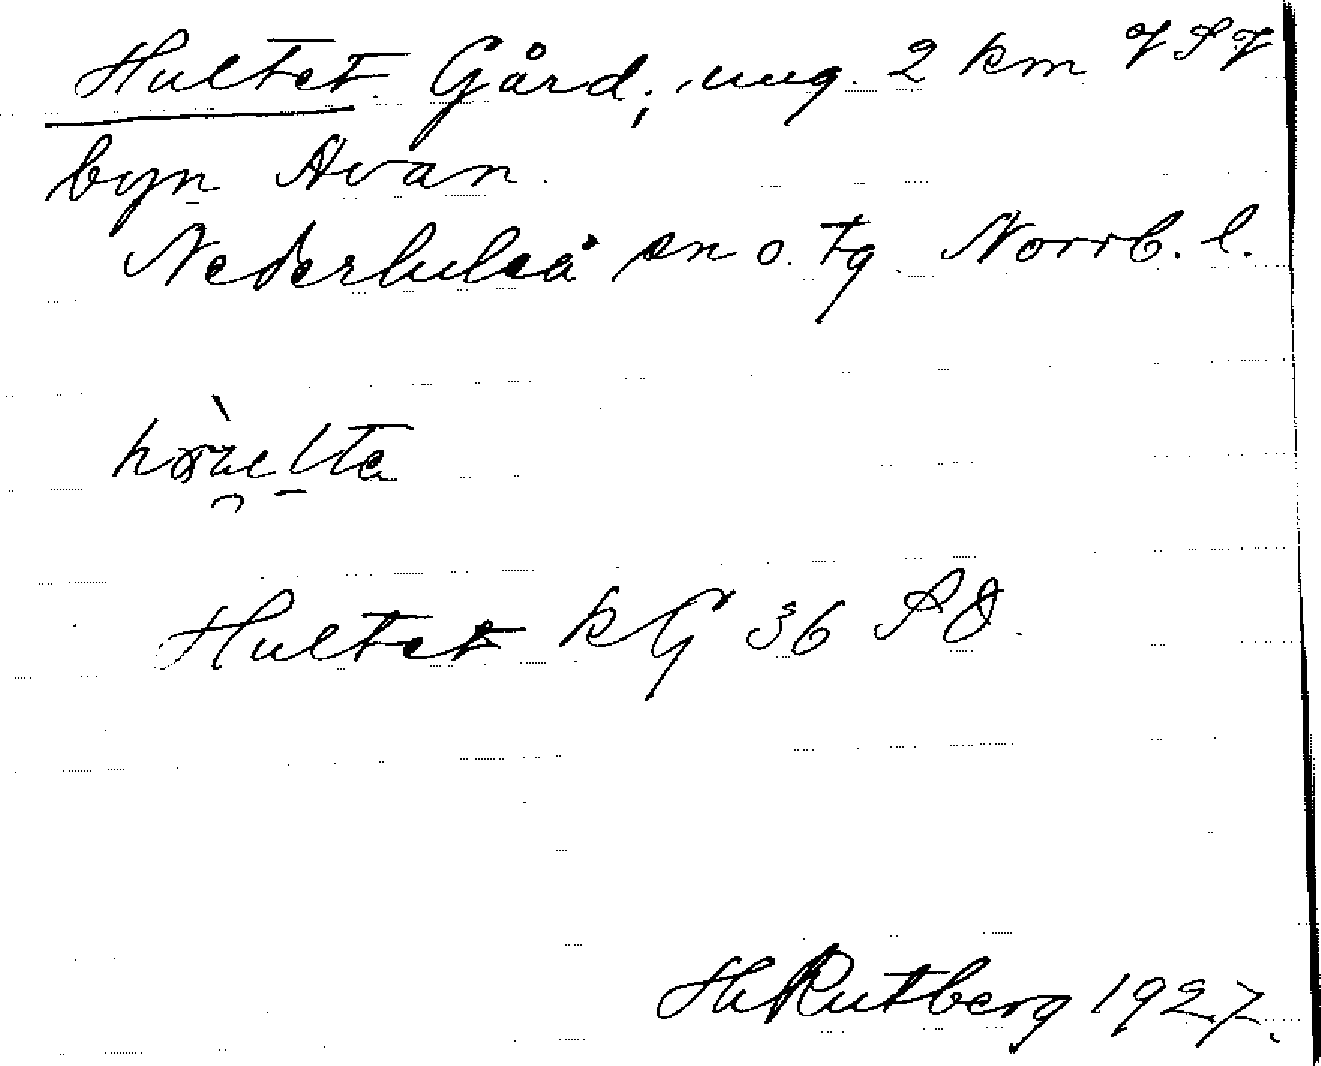 Hultet Gård; ung. 2 km VSV
byn Avan.
Nederluleå sn o. tg Norrb. l.
Hultet kG 36 SO.
H Rutberg 1927.